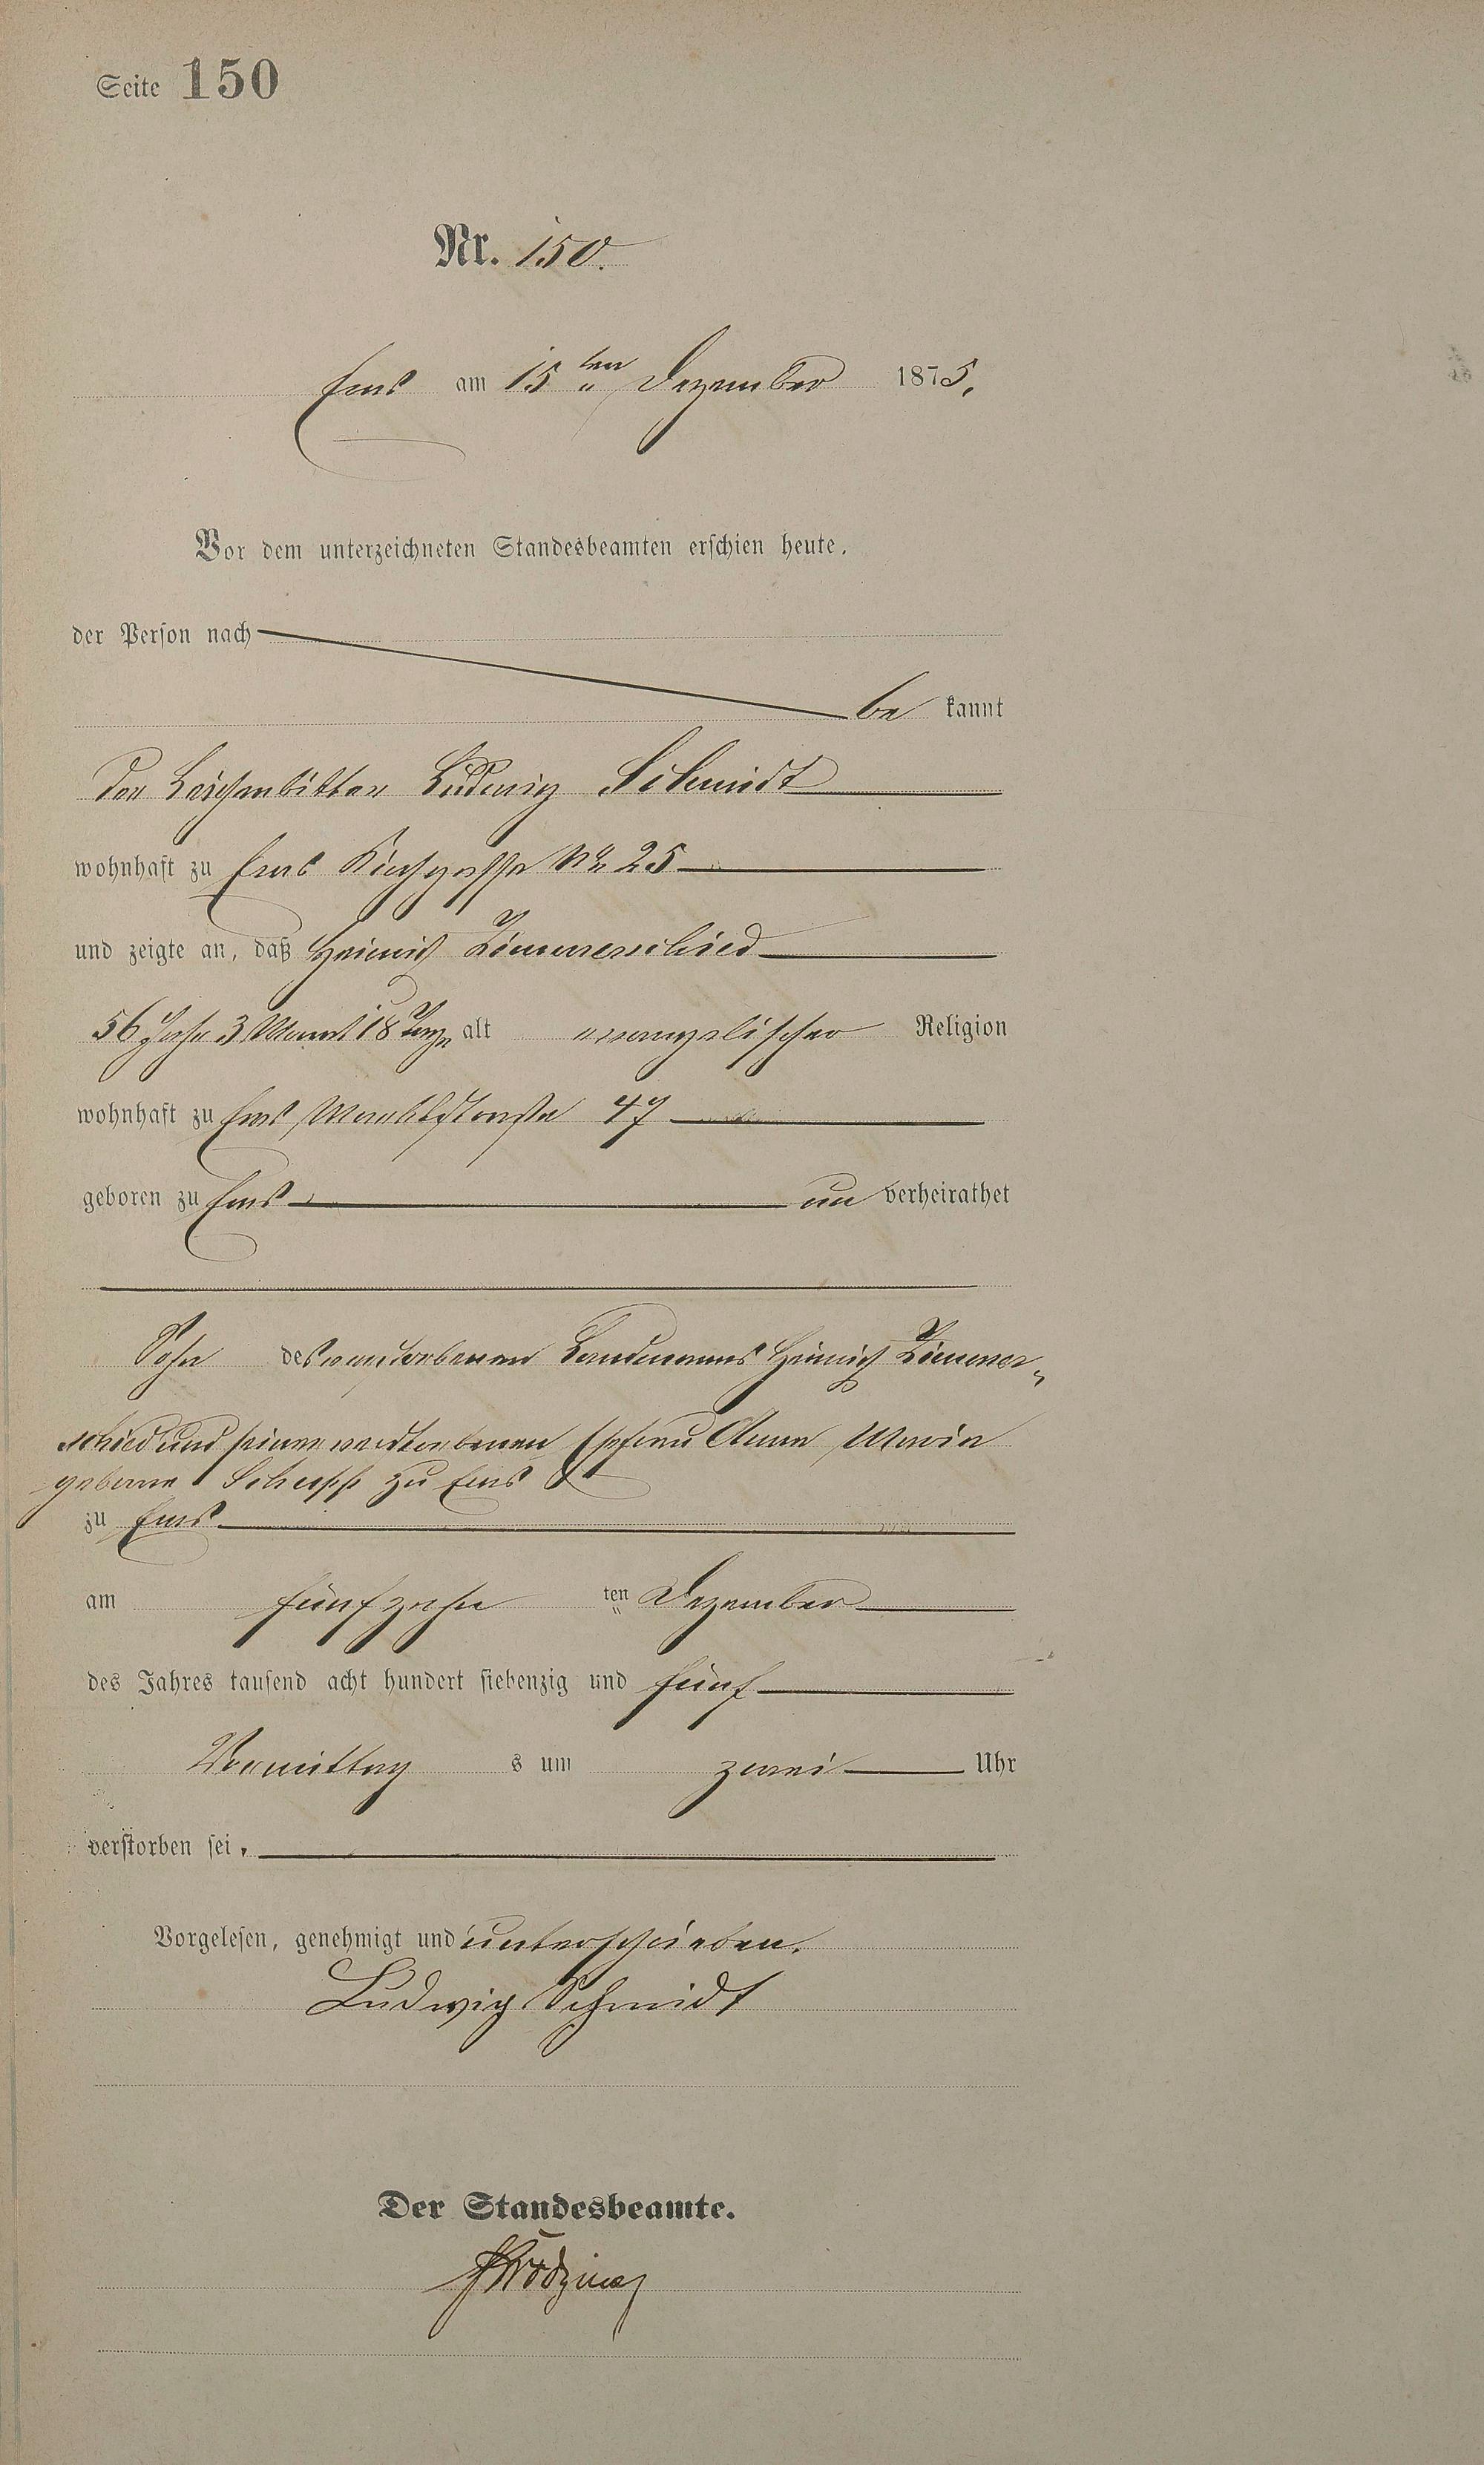 Seite 150
Nr. 150.
Ems am 15ten Dezember 1875.
Vor dem unterzeichneten Standesbeamten erschien heute,
der Person nach
be kannt
der Leichenbitter Ludwig Schmidt
wohnhaft zu Ems Kirchgasse No 25
und zeigte an, daß Heinrich Zimmerschied
56 Jahr 3 Monat 18 Tage alt evangelischer Religion
wohnhaft zu Ems 47
geboren zu Ems un verheirathet
Sohn des verstorbenen Landmanns Heinrich Zimmer-
schied und seiner verstorbenen Ehefrau Anna Maria
geborne Schupp zu Ems
zu Ems
am fünfzehn ten Dezember
des Jahres tausend acht hundert siebenzig und fünf
Vormittag s um zwei Uhr
verstorben sei.
Vorgelesen, genehmigt und unterschrieben.
Ludwig Schmidt
Der Standesbeamte.